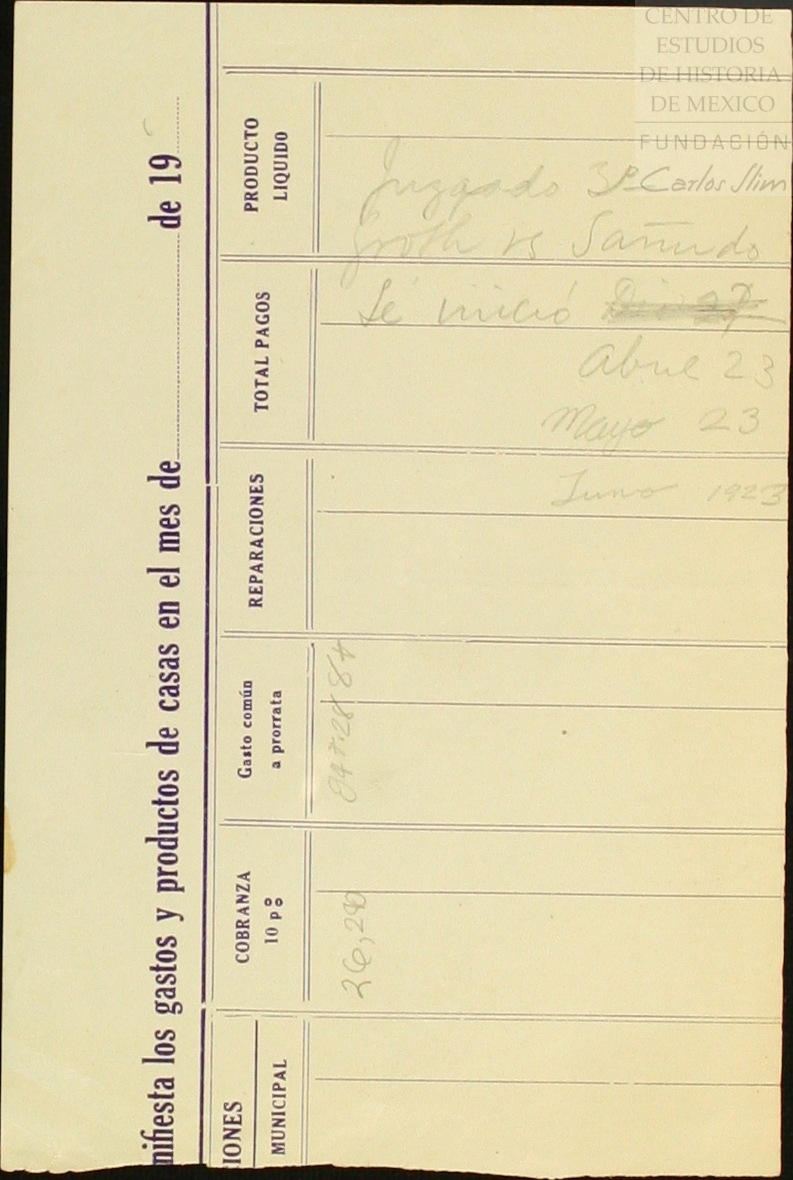 CENTRO DE
ESTUDIOS
DE HISTORIA
DE MEXICO
FUNDACIÓN
Carlos Slim
nifiesta los gastos y productos de casas en el mes de de 19
IONES
MUNICIPAL
COBRANZA
10 p%
Gasto común
a prorrata
REPARACIONES
TOTAL PAGOS
PRODUCTO
LIQUIDO
Juzgado 3º
Groth vs Sañudo
Se inició
Abril 23
Mayo 23
Junio 1923
26,290